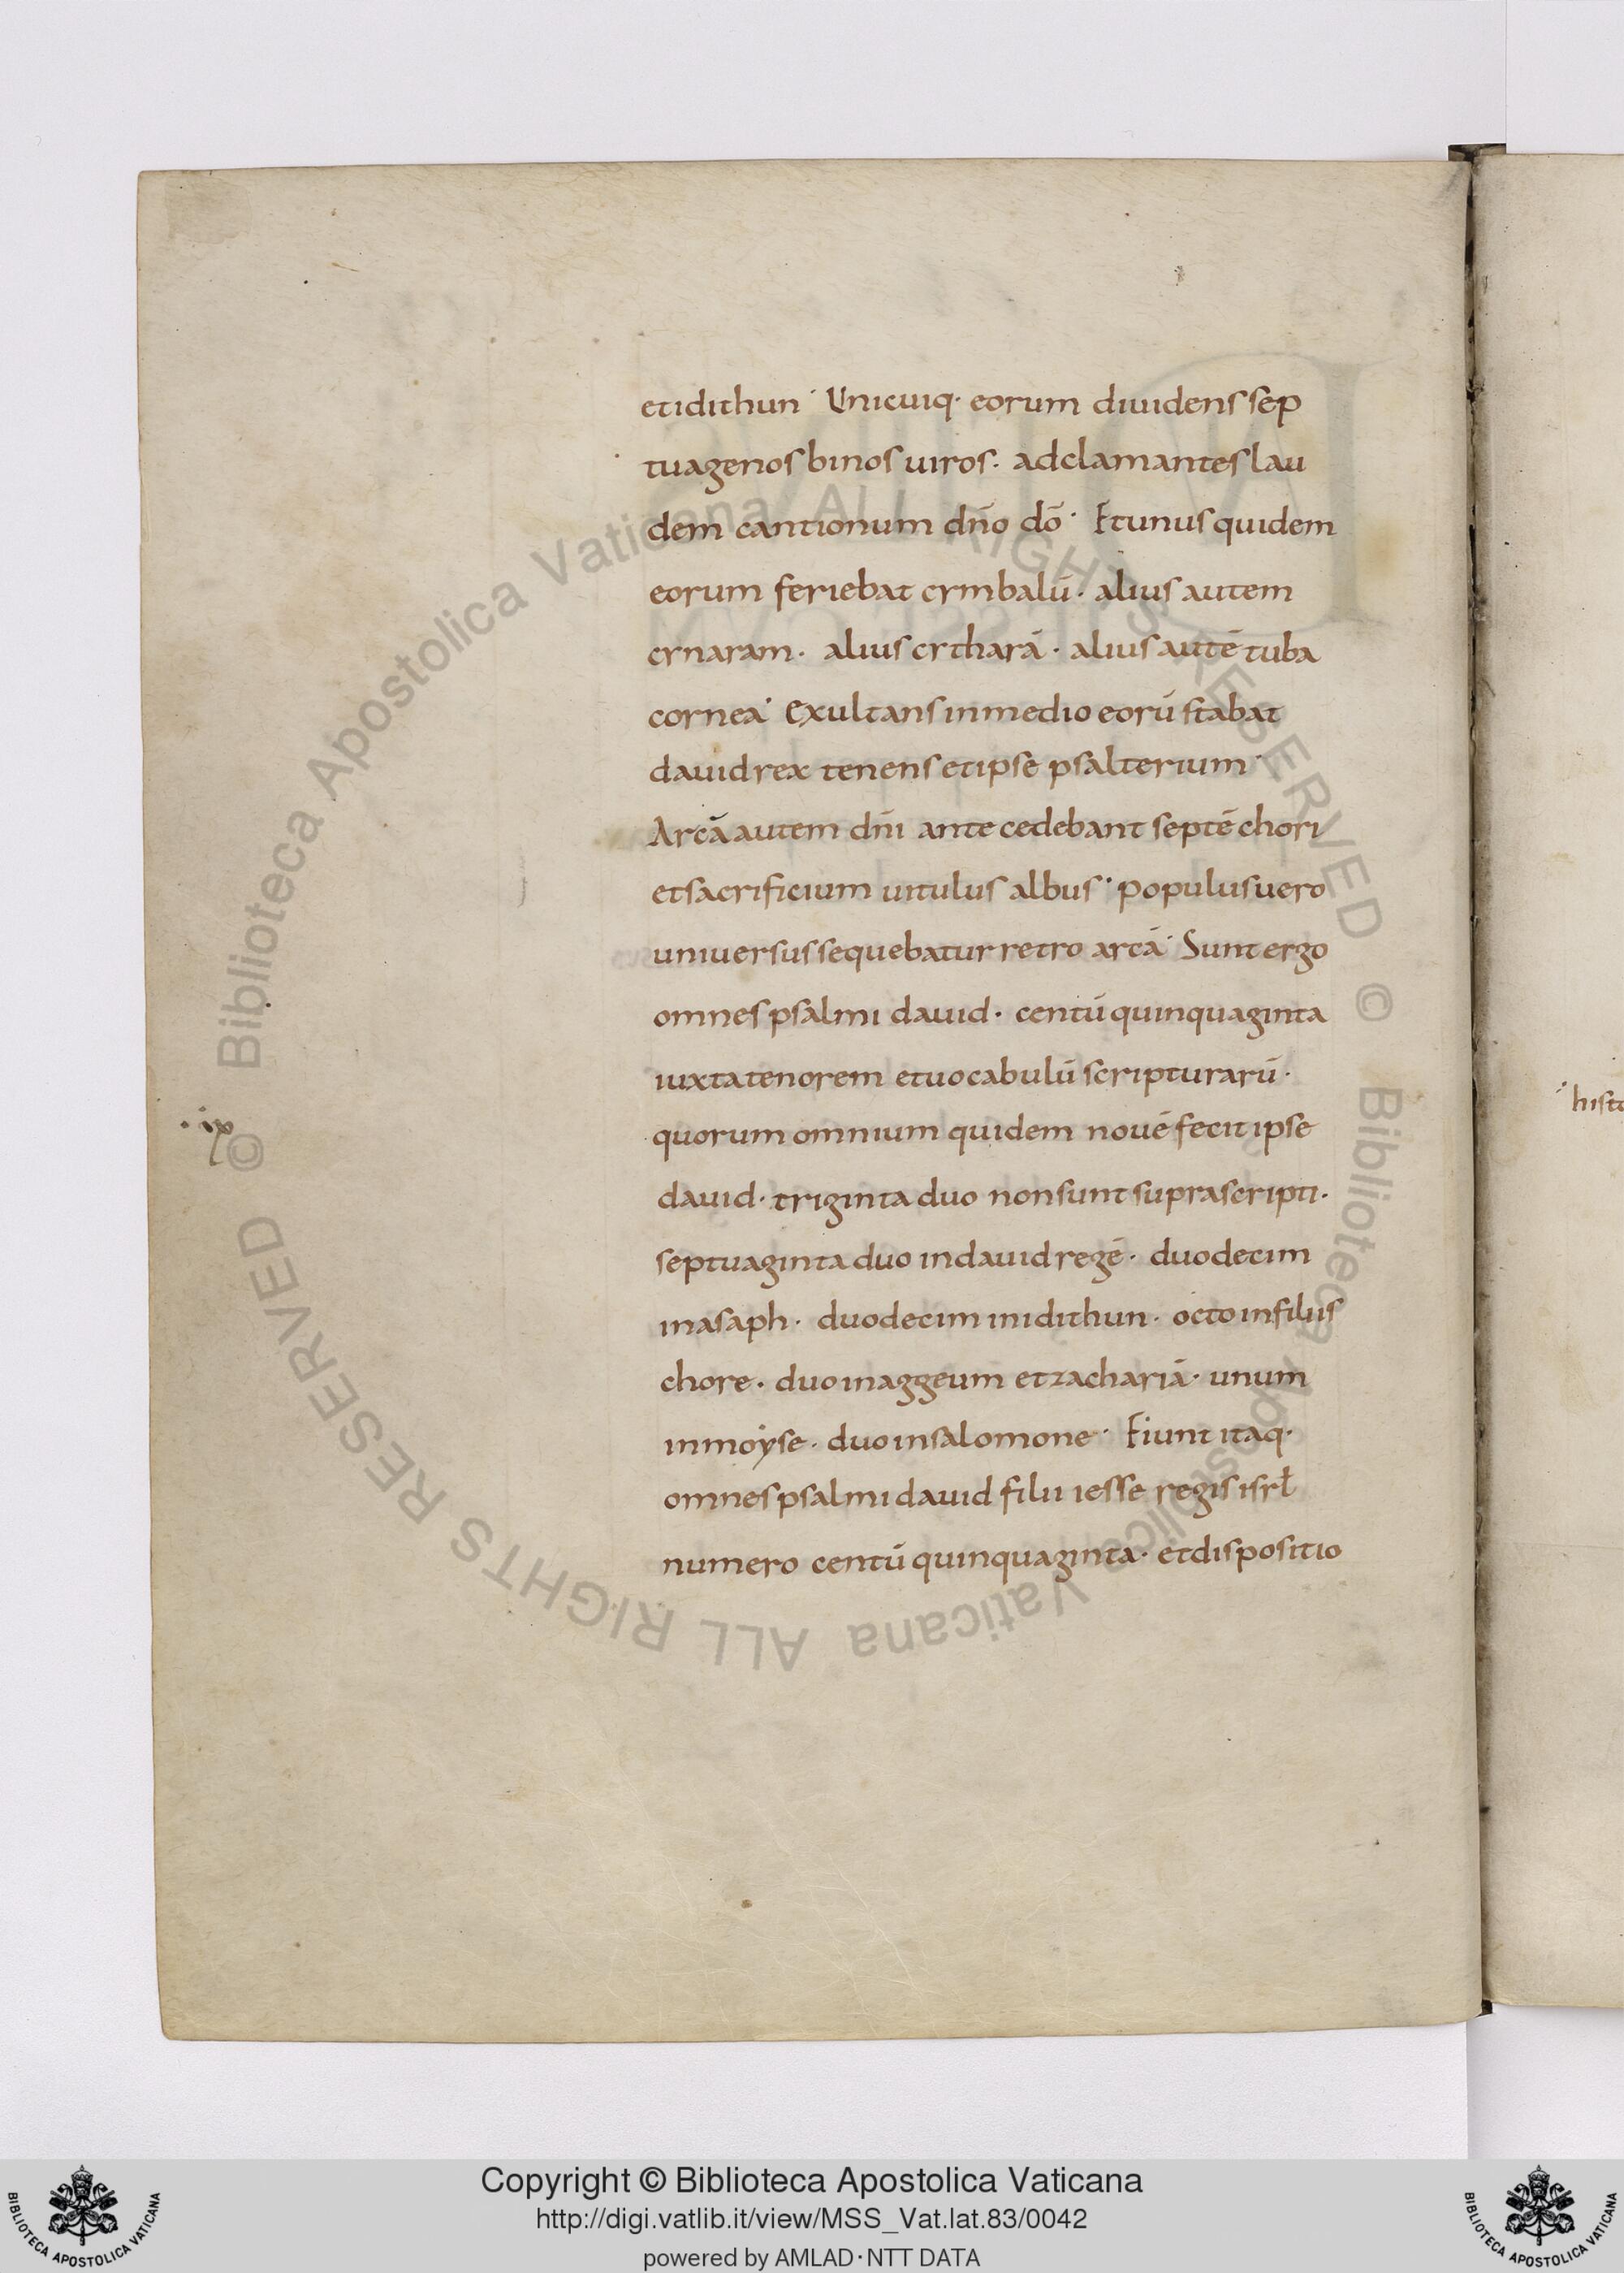 etidithun · Unicuiq· eorum diuidens sep
tuagenos binos uiros · adclamantes lau
dem cantionum dn̄o dō · Et unus quidem
eorum feriebat cymbalū · alius autem
cynaram · alius cytharā · alius autē tuba
cornea · Exultans in medio eorū stabat
dauid rex tenens et ipse psalterium ·
Arcā autem dn̄i ante cedebant septē chori
et sacrificium uitulus albus · populus uero
uniuersus sequebatur retro arcā · Sunt ergo
omnes psalmi dauid · centū quinquaginta
iuxta tenorem et uocabulū scripturarū ·
quorum omnium quidem nouē fecit ipse
dauid · triginta duo non sunt suprascripti ·
septuaginta duo in dauid regē · duodecim
in asaph · duodecim in idithun · octo in filiis
chore · duo in aggeum et zachariā · unum
in moẏse · duo in salomone · Fiunt itaq·
omnes psalmi dauid filii iesse regis isrł
numero centū quinquaginta · et dispositio
· ix
hist
Biblioteca Apostolica Vaticana ALL RIGHTS RESERVED ©
Biblioteca Apostolica Vaticana ALL RIGHTS RESERVED ©
Copyright © Biblioteca Apostolica Vaticana
http://digi.vatlib.it/view/MSS_Vat.lat.83/0042
powered by AMLAD·NTT DATA
BIBLIOTECA APOSTOLICA VATICANA
BIBLIOTECA APOSTOLICA VATICANA